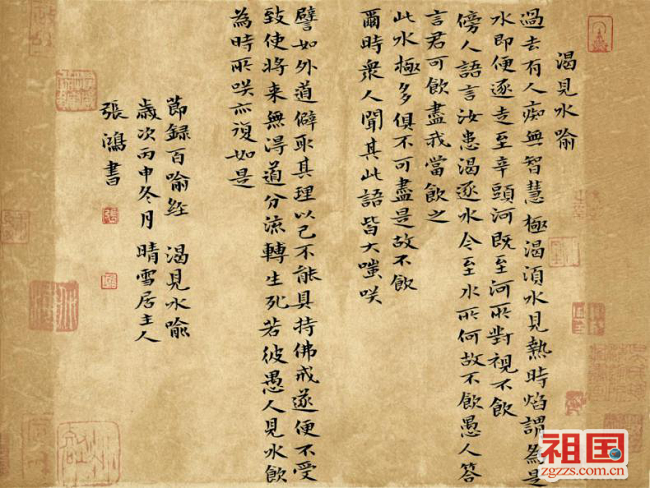 渴見水喻
過去有人癡無智慧極渴湏水見熱時焰謂為是
水即便逐走至辛頭河既至河所對視不飲
傍人語言汝患渴逐水今至水所何故不飲愚人答
言君可飲盡我當飲之
此水極多俱不可盡是故不飲
爾時衆人聞其此語皆大嗤咲
譬如外道僻取其理以己不能具持佛戒遂便不受
致使将来無得道分流轉生死若彼愚人見水飲
為時所咲亦復如是
節録百喻經 渴見水喻
歲次丙申冬月 晴雪居主人
張鴻書
祖国
zgzzs.com.cn